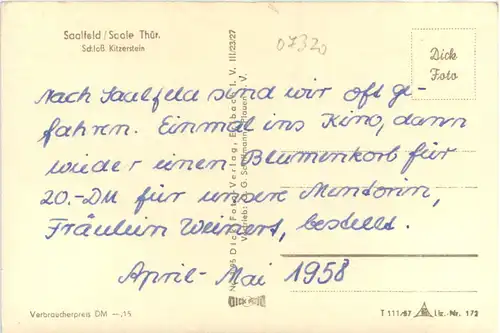 Saalfeld / Saale Thür.
Schloß Kitzerstein
07320
Dick
Foto
Nach Saalfeld sind wir oft ge-
fahren. Einmal ins Kino, dann
wieder einen Blumenkorb für
20.-DM für unsere Mentorin,
Fräulein Weinert, bestellt.
April-Mai 1958
Dick Foto Verlag, Erlbach i. V. III/23/27
Verbraucherpreis DM —,15
DICK FOTO
T 111/57
Liz.-Nr. 172